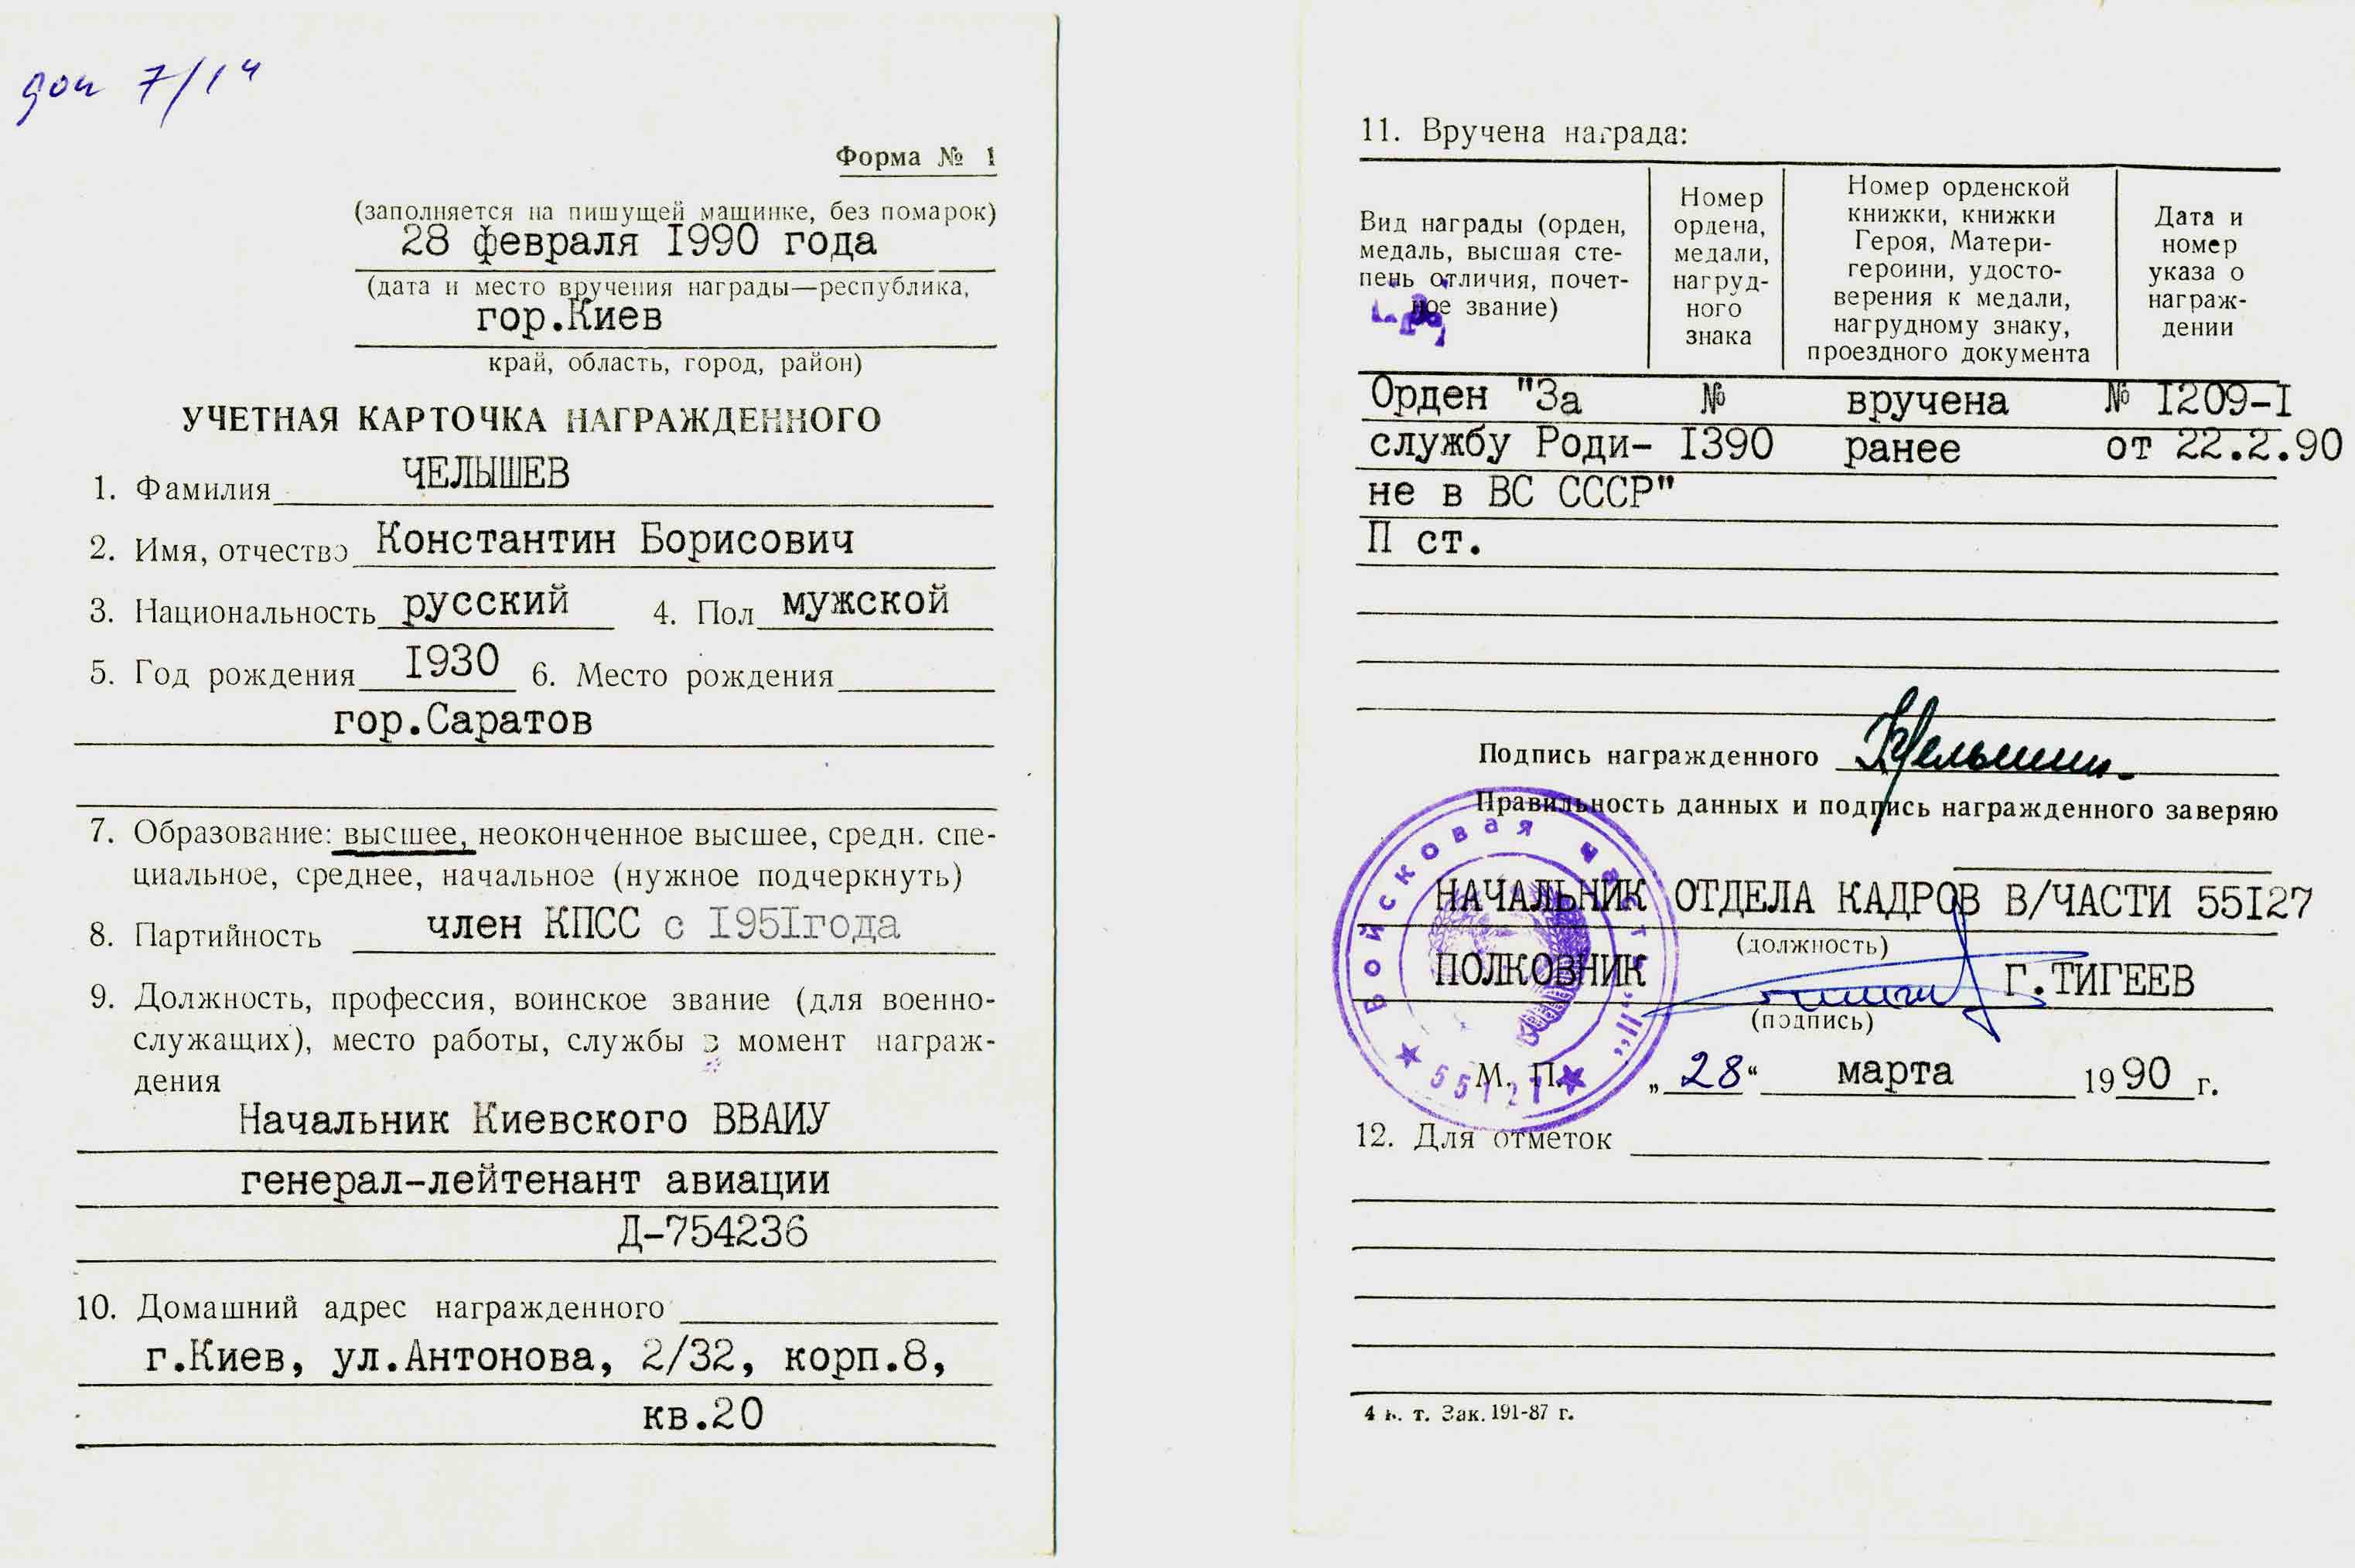 доп 7/14
Форма № 1
(заполняется на пишущей машинке, без помарок)
28 февраля I990 года
(дата и место вручения награды—республика,
гор.Киев
край, область, город, район)
УЧЕТНАЯ КАРТОЧКА НАГРАЖДЕННОГО
1. Фамилия ЧЕЛЫШЕВ
2. Имя, отчество Константин Борисович
3. Национальность русский 4. Пол мужской
5. Год рождения I930 6. Место рождения
гор.Саратов
7. Образование: высшее, неоконченное высшее, средн. спе-
циальное, среднее, начальное (нужное подчеркнуть)
8. Партийность член КПСС с I95Iгода
9. Должность, профессия, воинское звание (для военно-
служащих), место работы, службы в момент награж-
дения
Начальник Киевского ВВАИУ
генерал-лейтенант авиации
Д-754236
10. Домашний адрес награжденного
г.Киев, ул.Антонова, 2/32, корп.8,
кв.20
11. Вручена награда:
Вид награды (орден,
медаль, высшая сте-
пень отличия, почет-
ное звание)
Номер
ордена,
медали,
нагруд-
ного
знака
Номер орденской
книжки, книжки
Героя, Матери-
героини, удосто-
верения к медали,
нагрудному знаку,
проездного документа
Дата и
номер
указа о
награж-
дении
Орден "За № вручена № I209-I
службу Роди- I390 ранее от 22.2.90
не в ВС СССР"
П ст.
Подпись награжденного КЧелышев
Правильность данных и подпись награжденного заверяю
НАЧАЛЬНИК ОТДЕЛА КАДРОВ В/ЧАСТИ 55I27
(должность)
ПОЛКОВНИК Г.ТИГЕЕВ
(подпись)
Войсковая часть „II“
55127
М. П. „28“ марта 1990 г.
12. Для отметок
4 в. т. Зак. 191-87 г.